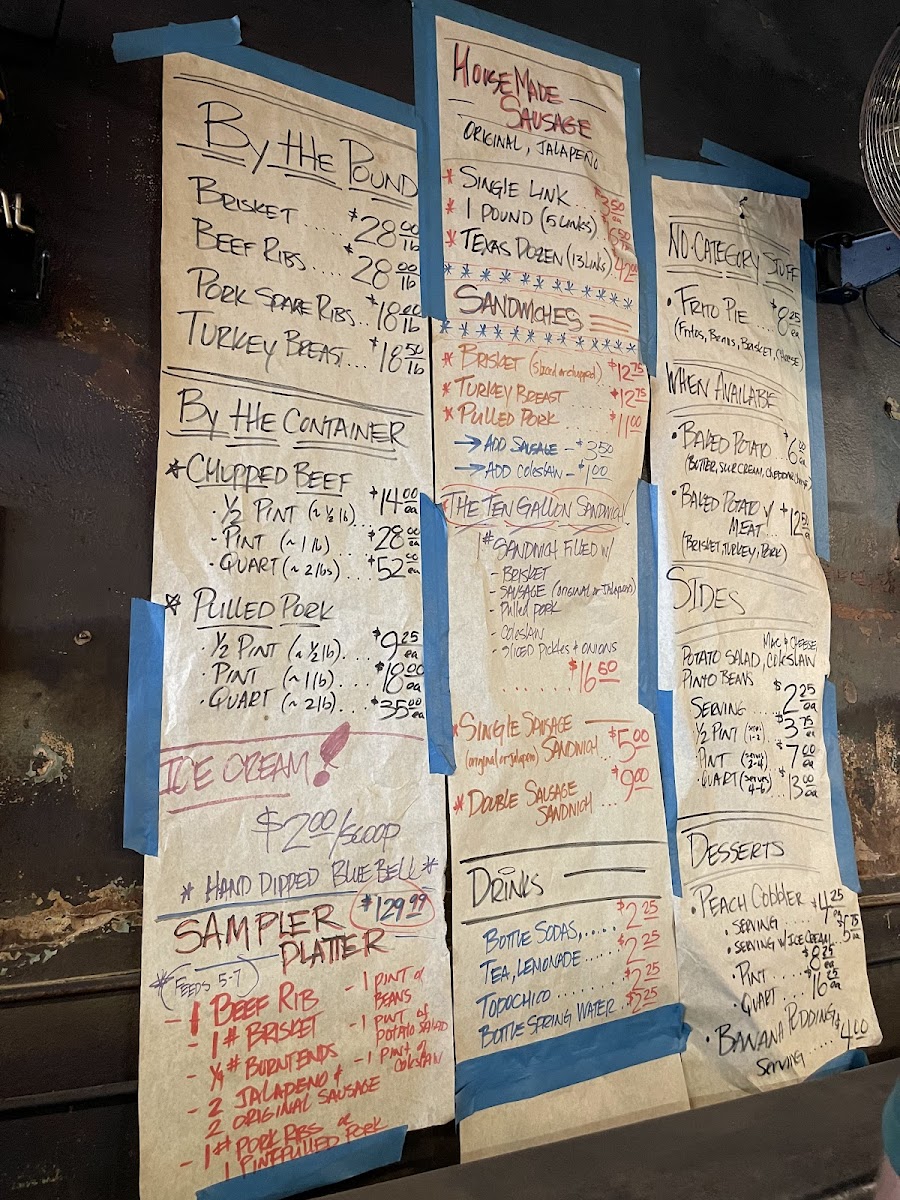 By the Pound
Brisket $28.00 lb
Beef Ribs.... $28.00 lb
Pork Spare Ribs.. $18.00 lb
Turkey Breast... $18.50 lb
By the Container
* Chopped Beef
· 1/2 Pint (~ 1/2 lb)... $14.00 ea
- Pint (~ 1 lb) ... $28.00 ea
- Quart (~ 2 lbs) ... $52.00 ea
* Pulled Pork
· 1/2 Pint (~ 1/2 lb).... $9.25 ea
· Pint (~ 1 lb).... $18.00 ea
· Quart (~ 2 lb).... $35.00 ea
Ice Cream!
$2.00/scoop
* Hand Dipped Blue Bell *
Sampler Platter $129.99
* Feeds 5-7
- 1 Beef Rib
- 1# Brisket
- 1/4# Burnt Ends
- 2 Jalapeno &
2 Original Sausage
- 1# Pork Ribs or
1 Pint Pulled Pork
- 1 Pint of
Beans
- 1 Pint of
Potato Salad
- 1 Pint of
Coleslaw
House Made
Sausage
Original, Jalapeño
* Single Link... $3.50 ea
* 1 Pound (5 Links)
* Texas Dozen (13 Links) $42.00
Sandwiches
* Brisket (sliced or chopped) $12.75
* Turkey Breast ... $12.75
* Pulled Pork .... $11.00
→ Add Sausage - $3.50
→ Add Coleslaw - $1.00
* The Ten Gallon Sandwich
1# Sandwich filled w/
- Brisket
- Sausage (original or Jalapeno)
- Pulled pork
- Coleslaw
- Sliced Pickles & Onions
...... $16.50
* Single Sausage
(original or jalapeno) Sandwich .. $5.00
* Double Sausage
Sandwich ... $9.00
Drinks
Bottle Sodas,..... $2.25
Tea, Lemonade.... $2.25
Topochico ........ $2.25
Bottle Spring Water . $2.25
No-Category Stuff
· Frito Pie .... $8.25 ea
(Fritos, Beans, Brisket, Cheese)
When Available
· Baked Potato ... $6.00 ea
(Butter, Sour Cream, Cheddar, Chive)
· Baked Potato w/
Meat ... $12.50
(Brisket, Turkey, Pork)
Sides
Mac & Cheese,
Potato Salad, Coleslaw
Pinto Beans
Serving .... $2.25 ea
1/2 Pint (serves 1-2) . $3.75 ea
· Pint (serves 3-4) .. $7.00 ea
· Quart (serves 4-6) .. $13.00 ea
Desserts
· Peach Cobbler
· Serving .... $4.25 ea
· Serving w/ Ice Cream .. $5.75 ea
· Pint .... $8.25 ea
· Quart .... $16.25 ea
· Banana Pudding $4.00
Serving .....